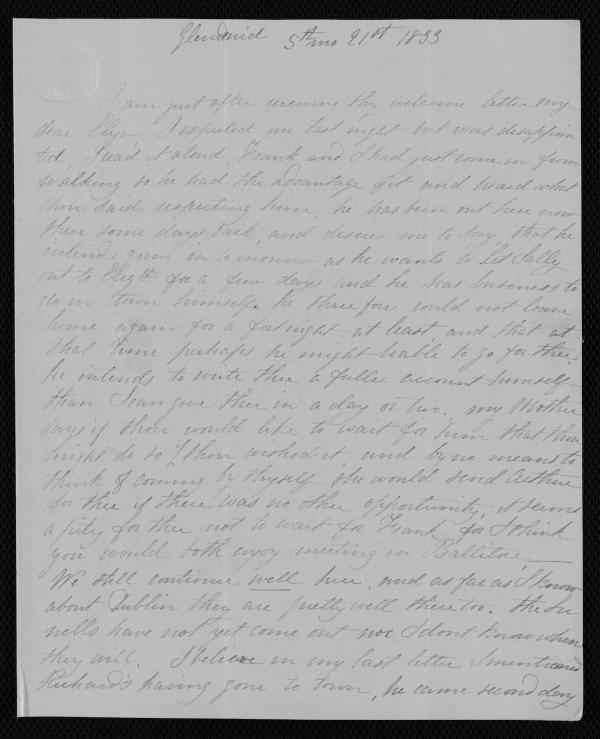 Glendruid 5th mo 21st 1833
I am just after receiving thy welcome letter my
dear Eliza I expected one last night but was disappoin
ted, I read it aloud, Frank and I had just come in from
walking so he had the advantage of it and heard what
thou said respecting him, he has been out here now
these some days back, and desires me to say that he
intends going in tomorrow as he wants to let Sally
out to Elizth for a few days and he has business to
do in town himself. he therefore could not leave
home again for a fortnight at least and that at
that time perhaps he might be able to go for thee.
he intends to write thee a fuller account himself
than I can give thee in a day or two. my Mother
says if thou would like to wait for him that thou
might do so if thou wished it and by no means to
think of coming by thyself she would send Arthur
for thee if there was no other opportunity, it seems
a pity for thee not to wait for Frank for I think
you would both enjoy meeting in Ballitore —
We still continue well here, and as far as I know
about Dublin they are pretty well there too. the
nells have not yet come out nor I dont know when
they will. I believe in my last letter I mentioned
Richard's having gone to town, he came second day